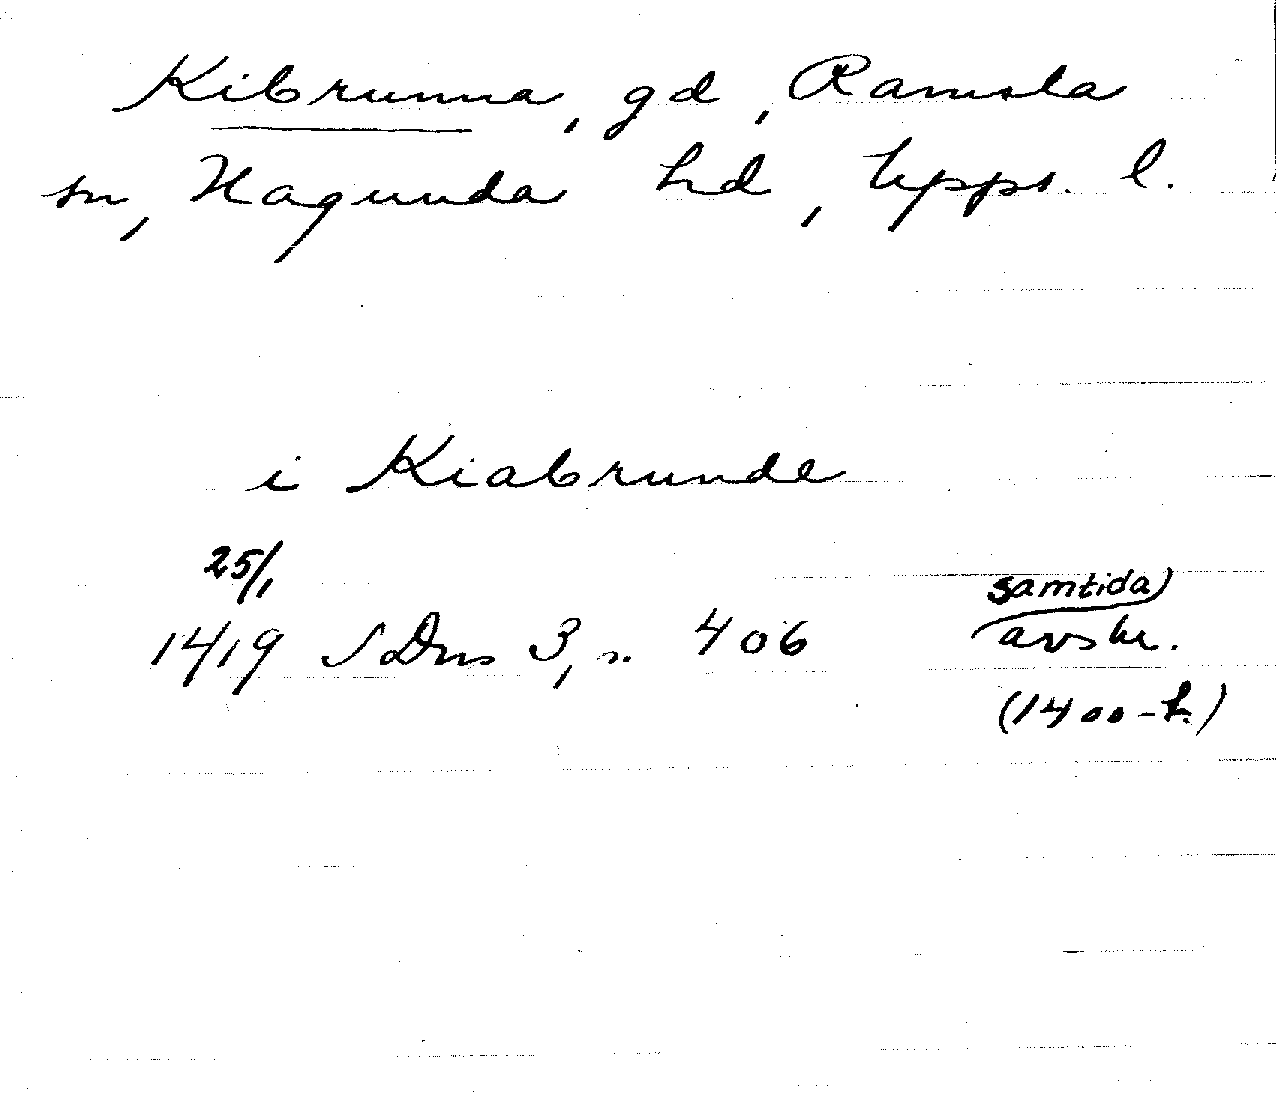 Kibrunna, gd, Ramsta
sn, Hagunda hd, Upps. l.
i Kiabrunde
25/1
1419 SDns 3, s. 406 samtida
avskr.
(1400-t.)